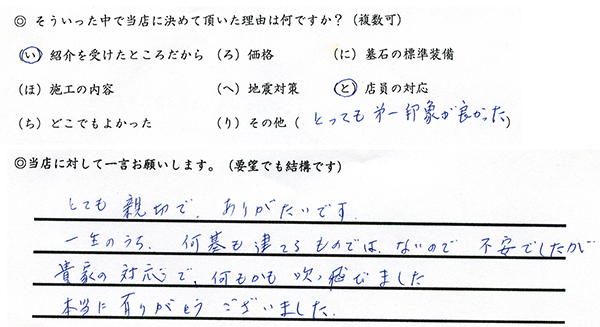 ◎ そういった中で当店に決めて頂いた理由は何ですか？（複数可）
（い）紹介を受けたところだから （ろ）価格 （に）墓石の標準装備
（ほ）施工の内容 （へ）地震対策 （と）店員の対応
（ち）どこでもよかった （り）その他（ とっても第一印象が良かった ）
◎当店に対して一言お願いします。（要望でも結構です）
とても親切で、ありがたいです。
一生のうち、何基も建てるものでは、ないので 不安でしたが
貴家の対応で、何もかも吹っ飛びました
本当に有りがとうございました。